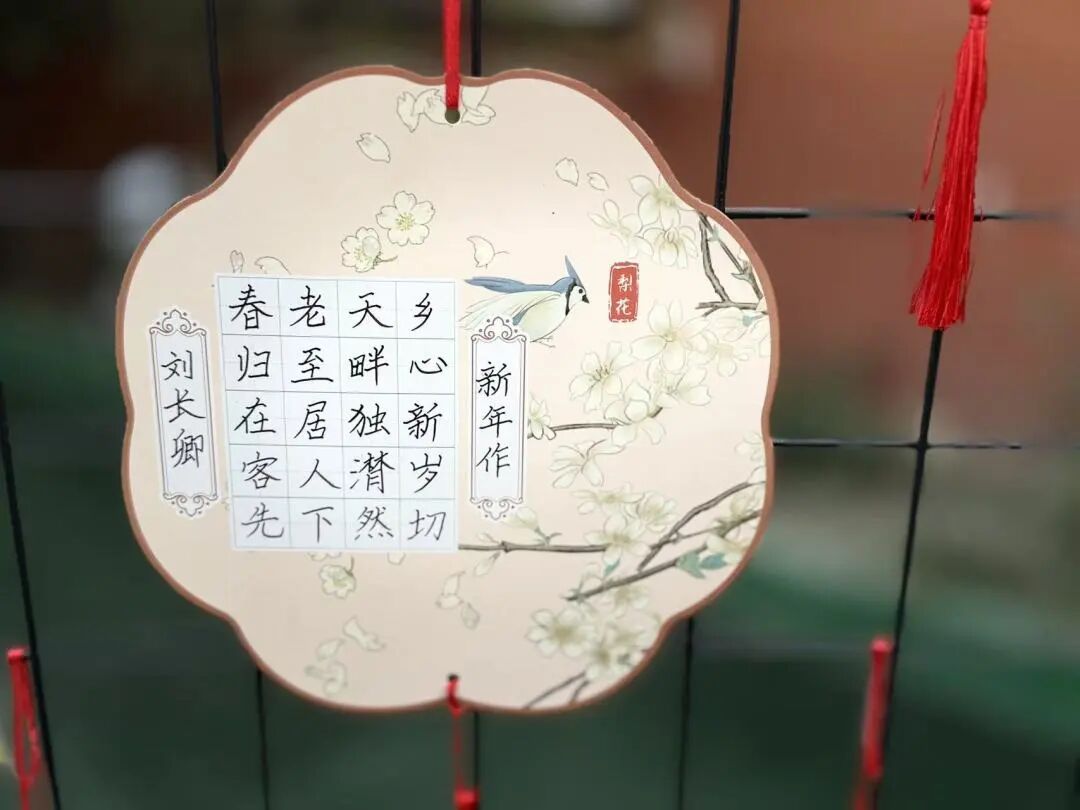 梨花
新年作
乡心新岁切
天畔独潸然
老至居人下
春归在客先
刘长卿